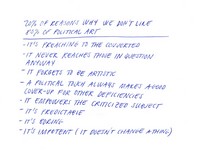 20% OF REASONS WHY WE DON'T LIKE
80% OF POLITICAL ART
- IT'S PREACHING TO THE CONVERTED
- IT NEVER REACHES THOSE IN QUESTION
ANYWAY
- IT FORGETS TO BE ARTISTIC
- A POLITICAL TOPIC ALWAYS MAKES A GOOD
COVER-UP FOR OTHER DEFICIENCIES
- IT EMPOWERS THE CRITICIZED SUBJECT
- IT'S PREDICTABLE
- IT'S BORING
- IT'S IMPOTENT (IT DOESN'T CHANGE A THING)